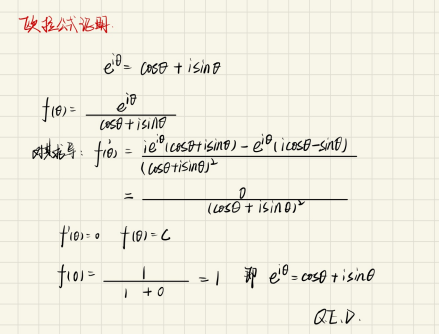 欧拉公式证明.
e^{iθ} = cosθ + isinθ
f(θ) = \frac{e^{iθ}}{cosθ + isinθ}
对其求导: f'(θ) = \frac{ie^{iθ}(cosθ+isinθ) - e^{iθ}(icosθ-sinθ)}{(cosθ+isinθ)^2}
= \frac{0}{(cosθ + isinθ)^2}
f'(θ) = 0 f(θ) = C
f(0) = \frac{1}{1 + 0} = 1 即 e^{iθ} = cosθ + isinθ
Q.E.D.